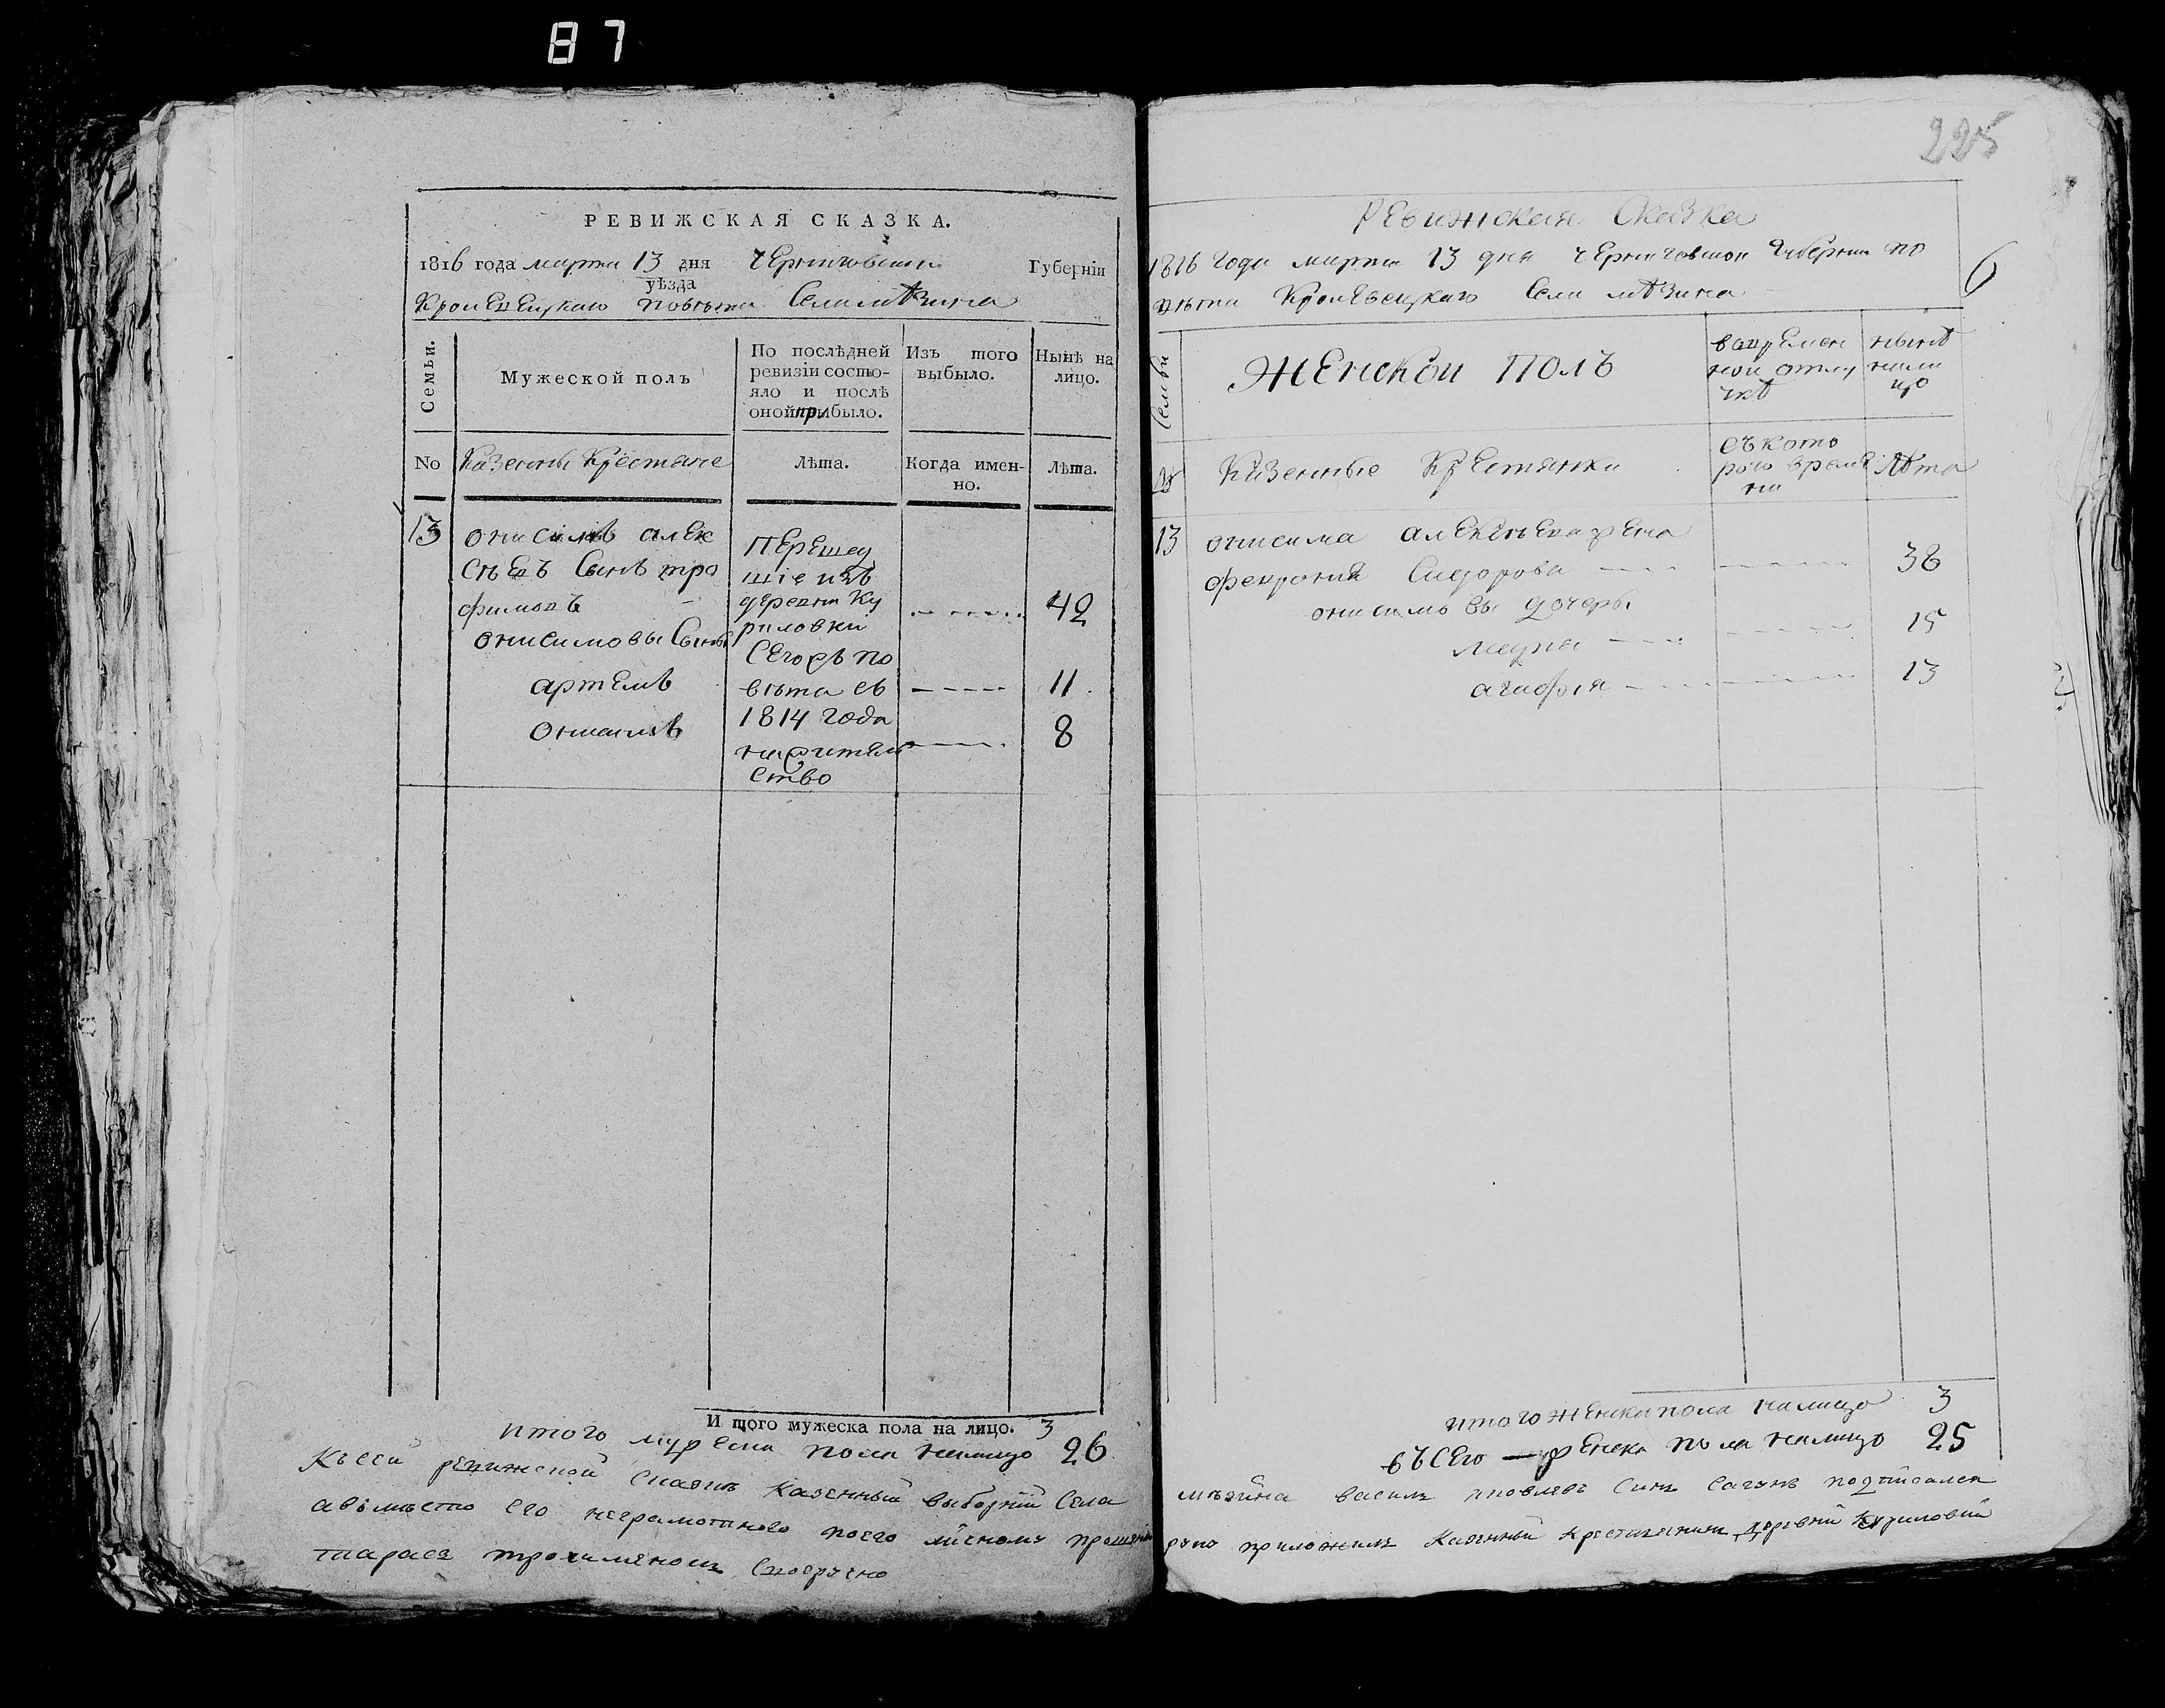 87
РЕВИЖСКАЯ СКАЗКА.
1816 года марта 13 дня Черниговской Губерніи
уѣзда
Кролевецкаго повѣта Села мѣзина
Семьи.
Мужеской полъ
По послѣдней
ревизіи состо-
яло и послѣ
оной прибыло.
Изъ того
выбыло.
Нынѣ на
лицо.
No
Казенны Крестяне
лѣта.
Когда имен-
но.
лѣта.
13
онисимъ алек
сѣевъ Сынъ тро
фимовъ
42
онисимовы Сыны
артемъ
11
онисимъ
8
перешед
шіе изъ
деревни Ку
риловки
повѣта съ
1814 года
ство
И того мужеска пола на лицо. 3
итого пола налицо 26
225
6
Ревижская Сказка
1816 года марта 13 дня Черниговской Губернии по
вѣта Кролевецкаго Села мѣзина
семьи
Женской полъ
вовремен
ной отлу
чкѣ
нынѣ
нали
цо
Казенные Крестянки
съ кото
рого време
ни
лѣта
13
онисима алексѣева жена
феврония Сидорова
38
онисимовы дочеры
15
агафия
13
итого женска пола налицо 3
всего женска пола налицо 25
Къ сей ревижской сказки казенный выборній Села мѣзина василь яковлевъ Синъ подписался
авместо его неграмотного поего личному прошению руку приложилъ казенный крестянинъ деревни Куриловки
тарасъ своеручно